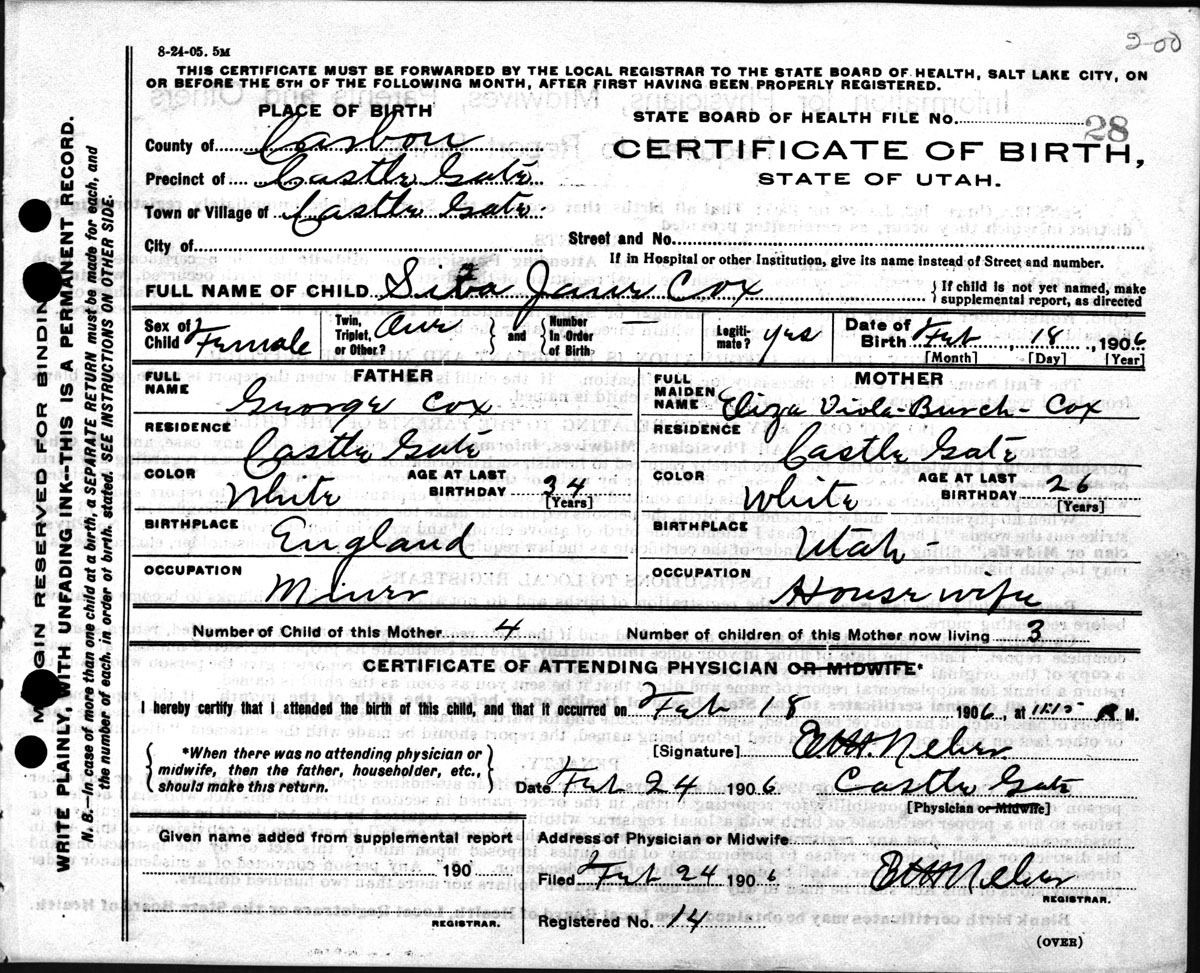 200
8-24-05. 5M
THIS CERTIFICATE MUST BE FORWARDED BY THE LOCAL REGISTRAR TO THE STATE BOARD OF HEALTH, SALT LAKE CITY, ON
OR BEFORE THE 5TH OF THE FOLLOWING MONTH, AFTER FIRST HAVING BEEN PROPERLY REGISTERED.
PLACE OF BIRTH
STATE BOARD OF HEALTH FILE No. 28
County of Carbon
CERTIFICATE OF BIRTH,
Precinct of Castle Gate
STATE OF UTAH.
Town or Village of Castle Gate
City of
Street and No.
If in Hospital or other Institution, give its name instead of Street and number.
FULL NAME OF CHILD Jane Cox
If child is not yet named, make
supplemental report, as directed
Sex of Child Female
Twin, Triplet, or Other? One
and
Number In Order of Birth —
Legitimate? yes
Date of Birth Feb, 18, 1906
[Month] [Day] [Year]
FATHER
MOTHER
FULL NAME George Cox
FULL MAIDEN NAME Eliza Viola-Burch-Cox
RESIDENCE Castle Gate
RESIDENCE Castle Gate
COLOR White
AGE AT LAST BIRTHDAY 34 [Years]
COLOR White
AGE AT LAST BIRTHDAY 26 [Years]
BIRTHPLACE England
BIRTHPLACE Utah
OCCUPATION Miner
OCCUPATION House wife
Number of Child of this Mother 4
Number of children of this Mother now living 3
CERTIFICATE OF ATTENDING PHYSICIAN OR MIDWIFE*
I hereby certify that I attended the birth of this child, and that it occurred on Feb 18 1906, at M.
*When there was no attending physician or
midwife, then the father, householder, etc.,
should make this return.
[Signature]
Date Feb 24 1906 Castle Gate
[Physician or Midwife]
Given name added from supplemental report
190
REGISTRAR.
Address of Physician or Midwife
Filed Feb 24 1906
REGISTRAR.
Registered No. 14
(OVER)
MARGIN RESERVED FOR BINDING
WRITE PLAINLY, WITH UNFADING INK--THIS IS A PERMANENT RECORD.
N. B.—In case of more than one child at a birth, a SEPARATE RETURN must be made for each, and
the number of each, in order of birth, stated. SEE INSTRUCTIONS ON OTHER SIDE.